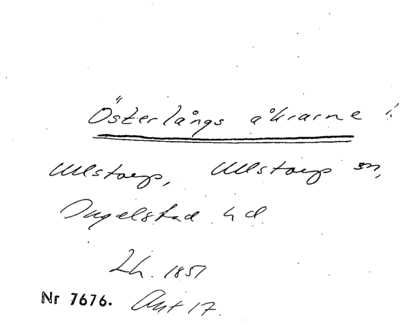 Österlångs åkrarne i
Ullstorp, Ullstorp sn,
Ingelstad hd.
Lh. 1851
Nr 7676. Akt 17.